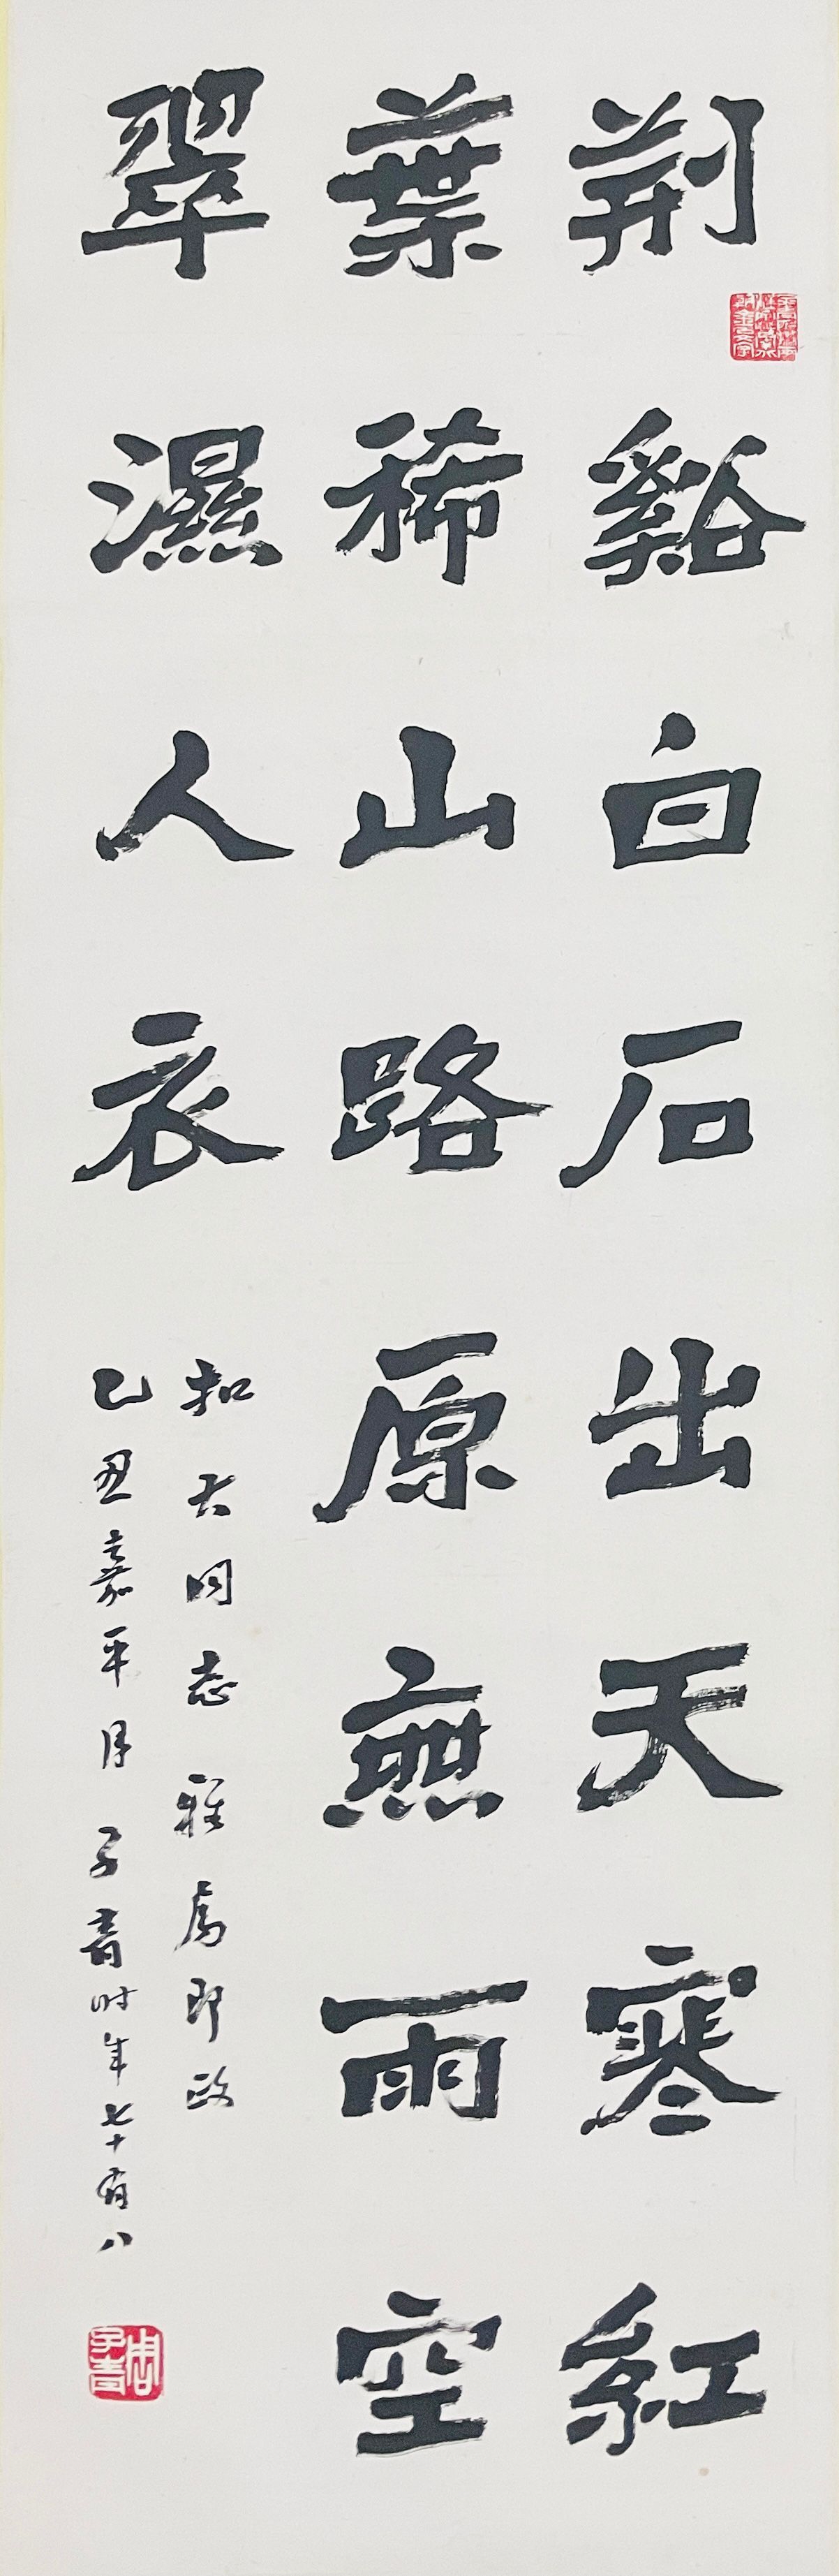 荆谿白石出天寒紅
葉稀山路原無雨空
翠濕人衣
扣大同志雅屬即政
乙丑嘉平月子青时年七十有八
周子青